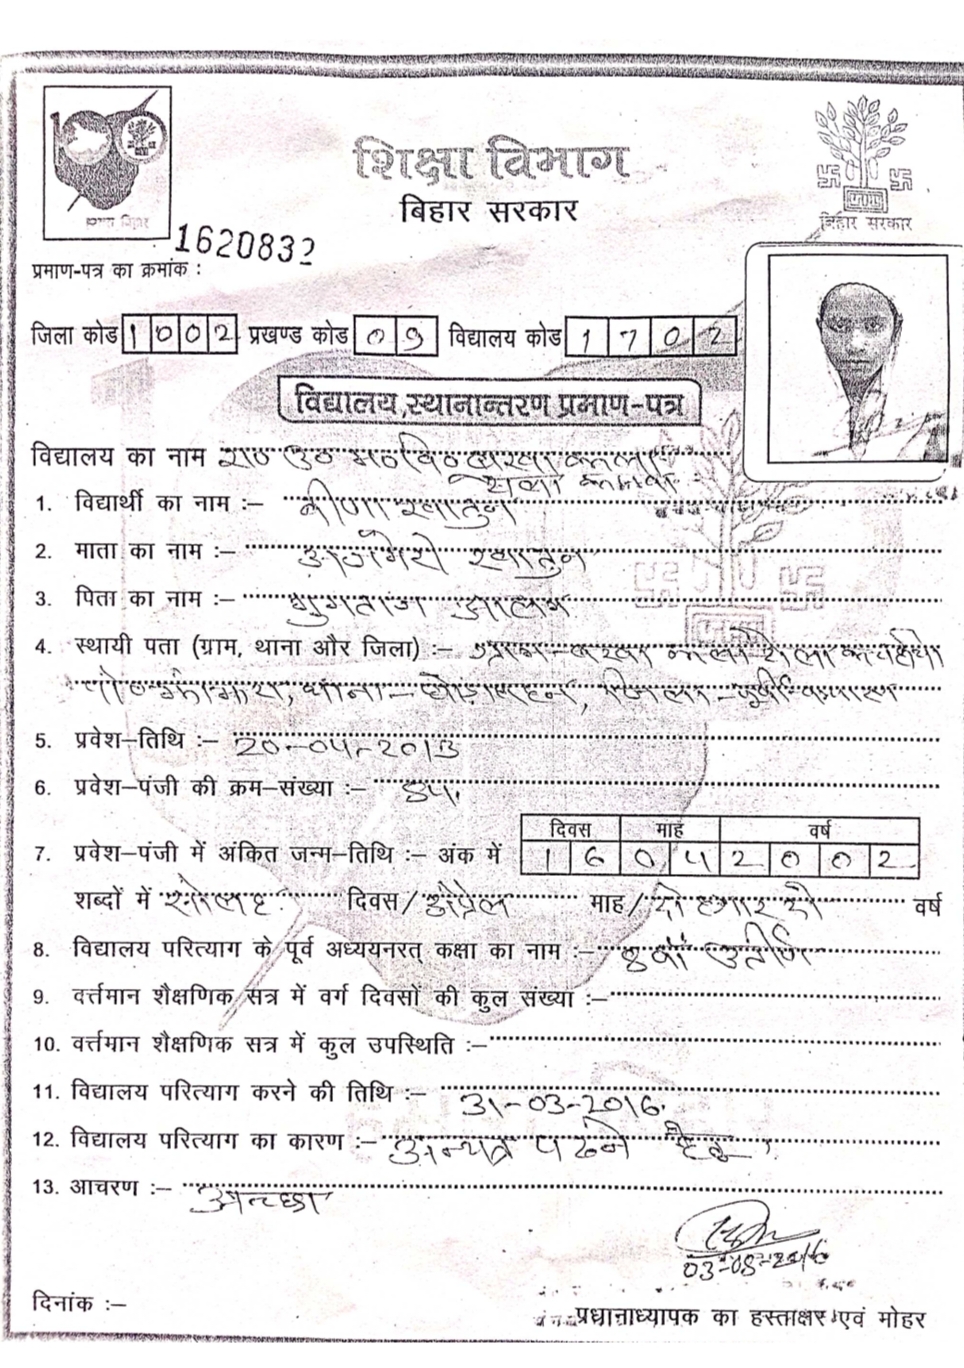 शिक्षा विभाग
बिहार सरकार
बिहार सरकार
1620832
प्रमाण-पत्र का क्रमांक :
जिला कोड 1002 प्रखण्ड कोड 09 विद्यालय कोड 1702
विद्यालय स्थानान्तरण प्रमाण-पत्र
विद्यालय का नाम रा० उ० म० वि०
1. विद्यार्थी का नाम :– खातुन
2. माता का नाम :– खातुन
3. पिता का नाम :– आलम
4. स्थायी पता (ग्राम, थाना और जिला) :– ग्राम-
थाना- घोड़ासहन, जिला- पूर्वी चम्पारण
5. प्रवेश–तिथि :– 20-04-2013
6. प्रवेश–पंजी की क्रम–संख्या :–
दिवस माह वर्ष
7. प्रवेश–पंजी में अंकित जन्म–तिथि :– अंक में 16042002
शब्दों में सोलह दिवस/अप्रैल माह/दो हजार दो वर्ष
8. विद्यालय परित्याग के पूर्व अध्ययनरत् कक्षा का नाम :– 8वीं उतीर्ण
9. वर्त्तमान शैक्षणिक सत्र में वर्ग दिवसों की कुल संख्या :–
10. वर्त्तमान शैक्षणिक सत्र में कुल उपस्थिति :–
11. विद्यालय परित्याग करने की तिथि :– 31-03-2016.
12. विद्यालय परित्याग का कारण :– अन्यत्र पढने हेतु
13. आचरण :– अच्छा
03-08-2016
दिनांक :–
प्रधानाध्यापक का हस्ताक्षर एवं मोहर